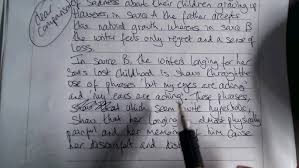 Clear comparison
of sadness about their children growing up
However, in source A the father accepts
their natural growth, whereas in source B
the writer feels only regret and a sense of
loss.
In source B, the writer's longing for her
sons lost childhood is shown through the
use of phrases but my eyes are aching
and 'my ears are aching'. These phrases,
that whilst seem quite hyperbolic,
show that her longing is almost physically
painful and her memories of him cause
her discomfort and dist